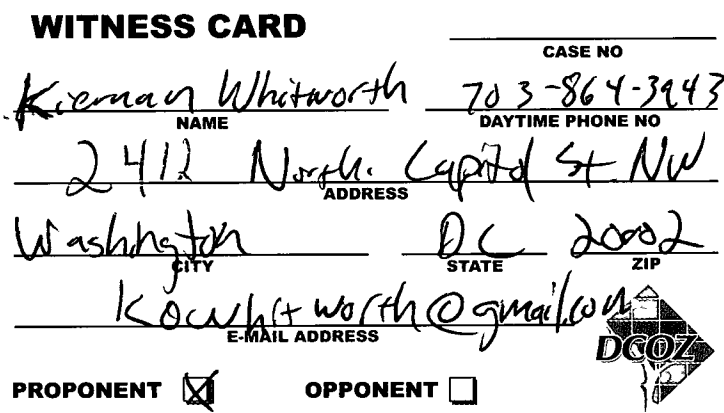 WITNESS CARD
CASE NO
Kiernan Whitworth 703-864-3943
NAME DAYTIME PHONE NO
2412 North. Capitol St NW
ADDRESS
Washington DC 20002
CITY STATE ZIP
Kowhitworth@gmail.com
E-MAIL ADDRESS
DCOZ
PROPONENT OPPONENT